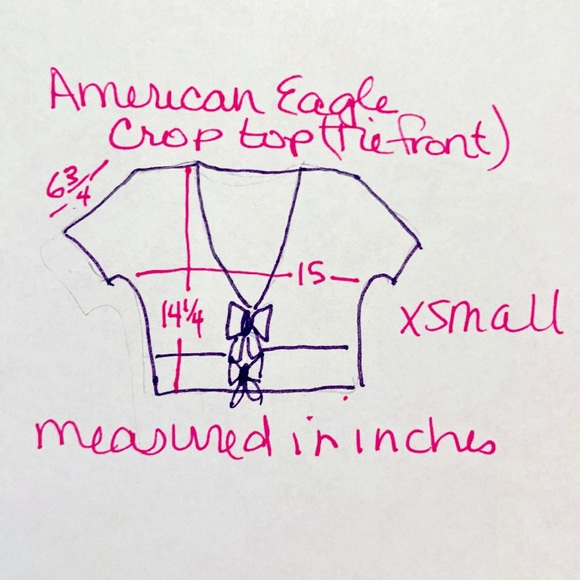 American Eagle
Crop top (tie front)
6 3/4
15
14 1/4
xsmall
measured in inches